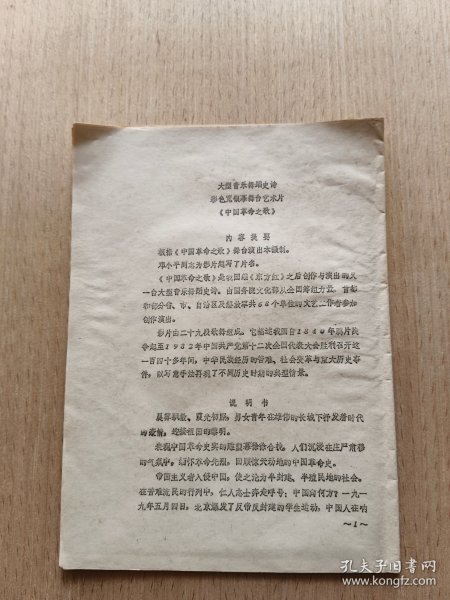 大型音乐舞蹈史诗
彩色宽银幕舞台艺术片
《中国革命之歌》
内容提要
根据《中国革命之歌》舞台演出本摄制。
邓小平同志为影片题写了片名。
《中国革命之歌》是我国继《东方红》之后创作与演出的又
一台大型音乐舞蹈史诗。由国务院文化部从全国筹组力量,首都
和部分省、市、自治区及解放军共66个单位的文艺工作者参加
创作演出。
影片由二十九段歌舞组成。它描述我国自1840年鸦片战
争起至1982年中国共产党第十二次全国代表大会胜利召开这
一百四十多年间,中华民族经历的苦难、社会变革与重大历史事
件,以写意手法再现了不同历史时期的典型情景。
说明书
晨雾飘散,霞光初照,男女青年在雄伟的长城下抒发着时代
的豪情,迎接祖国的黎明。
表现中国革命史实的雕塑幕徐徐合拢,人们沉浸在庄严肃穆
的气氛中,缅怀革命先烈,回顾惊天动地的中国革命史。
帝国主义者入侵中国,使之沦为半封建、半殖民地的社会。
在苦难流民的行列中,仁人志士奔走呼号:中国向何方?一九一
九年五月四日,北京爆发了反帝反封建的学生运动,中国人在呐
~1~
孔夫子旧书网
kongfz.com